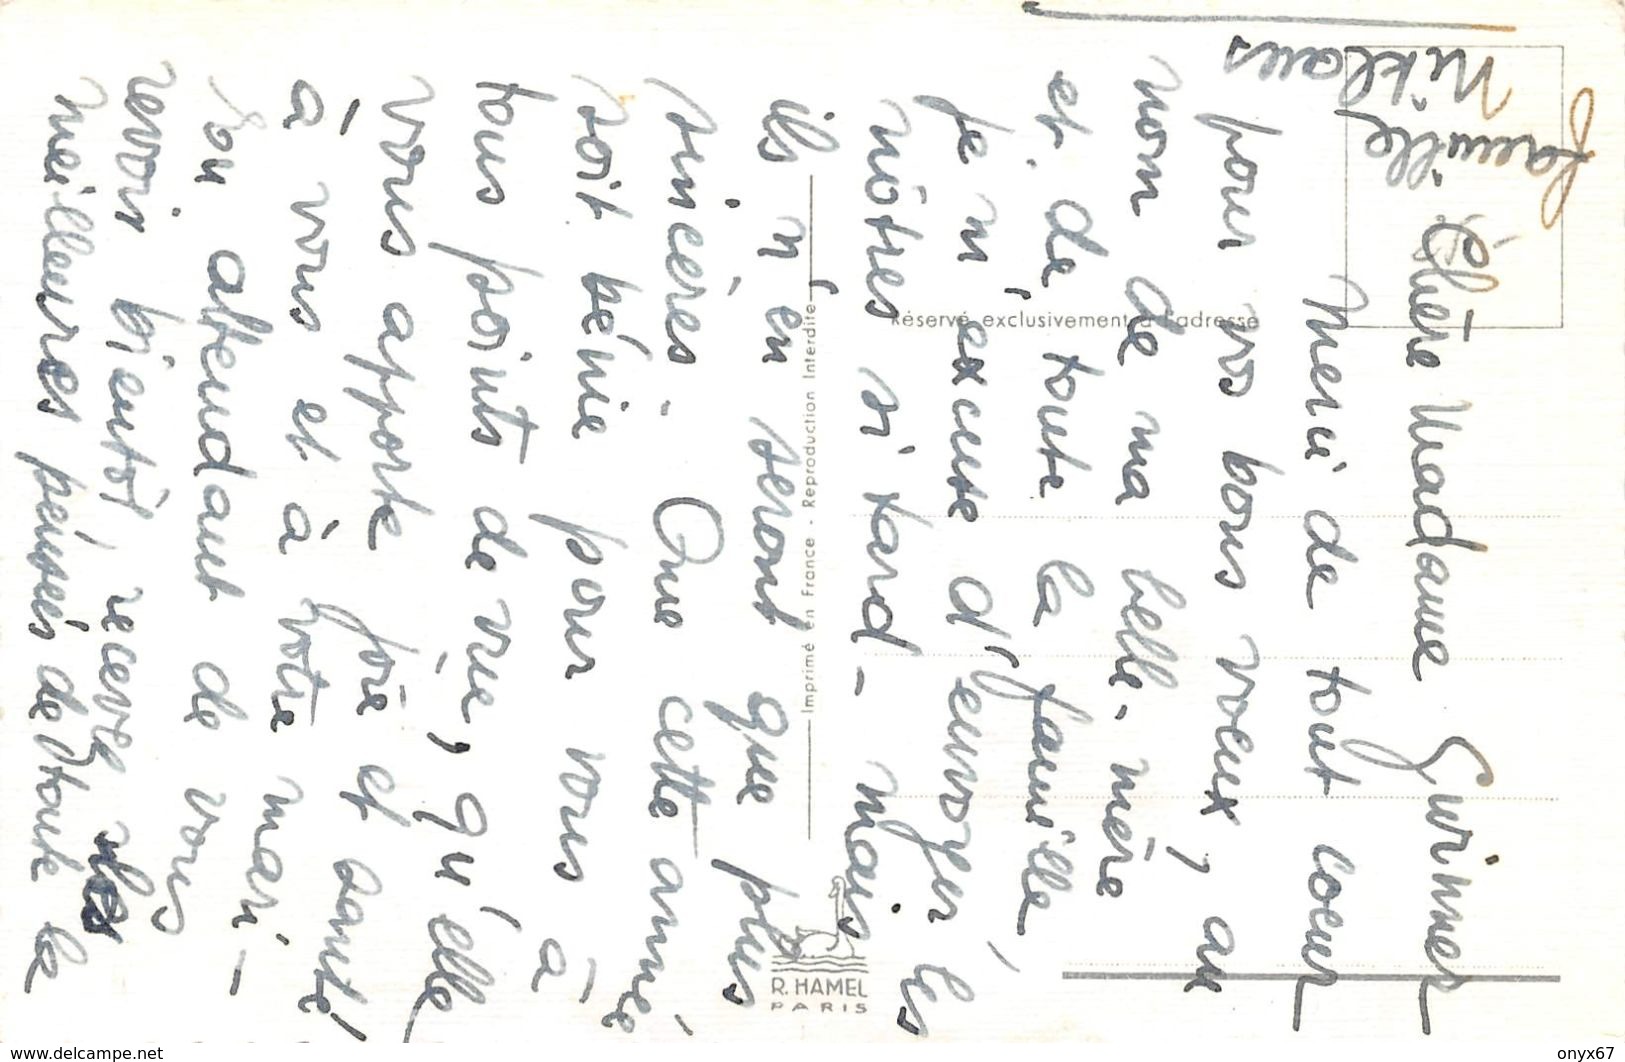 Chère Madame Gwinner
Merci de tout coeur
pour vos bons voeux, au
nom de ma belle-mère
et de toute la famille,
je m'excuse d'envoyer les
nôtres si tard - mais
ils n'en seront que plus
sincères. Que cette année
soit bénie pour vous à
tous points de vue, qu'elle
vous apporte joie et santé
à vous et à votre mari -
En attendant de vous
revoir bientôt recevez les
meilleures pensées de toute la
famille
Niklaus
Réservé exclusivement à l'adresse
Imprimé en France - Reproduction Interdite
R. HAMEL
PARIS
www.delcampe.net
onyx67